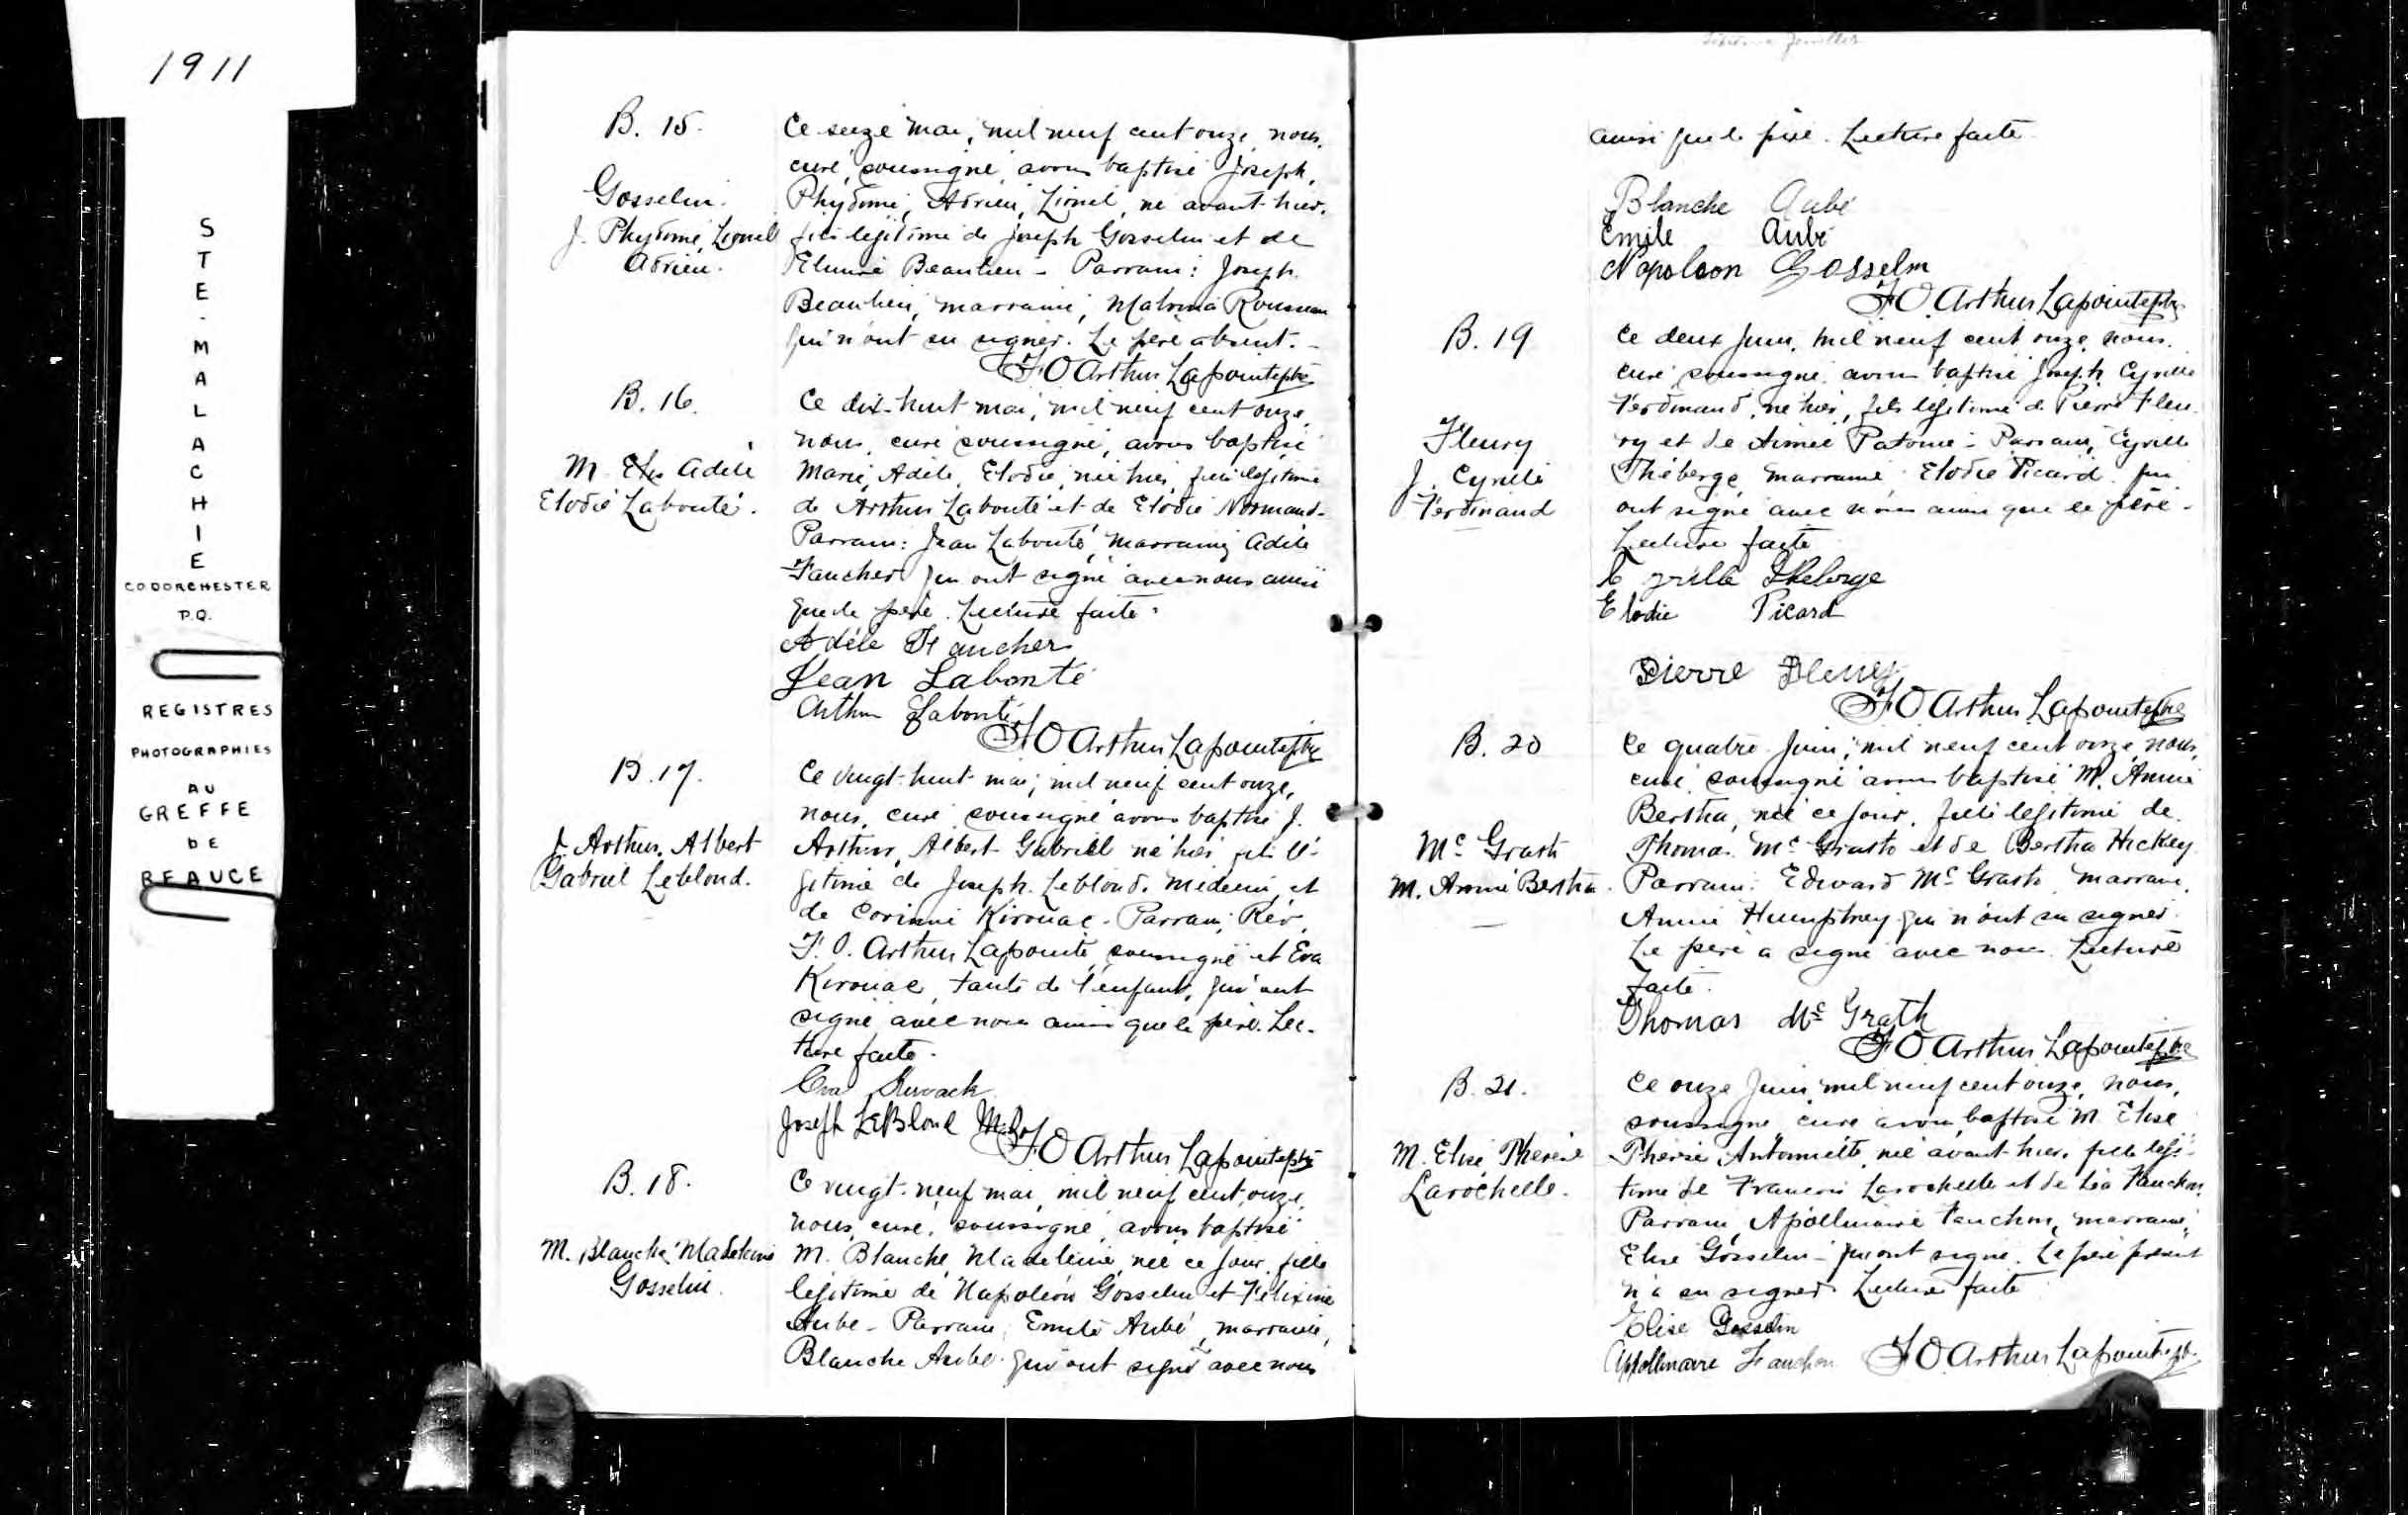 1911
STE-MALACHIE
CO DORCHESTER
P.Q.
REGISTRES
PHOTOGRAPHIES
AU
GREFFE
DE
BEAUCE
B. 15.
Gosselin.
J. Phydime, Lionel
Adrien.
Ce seize mai, mil neuf cent onze, nous,
curé, soussigné, avons baptisé Joseph,
Phydime, Adrien, Lionel, né avant-hier,
fils légitime de Joseph Gosselin et de
Beaulieu - Parrain: Joseph
Beaulieu, marraine, Malvina Rousseau
qui n'ont su signer. Le père absent. -
F O Arthur Lapointe ptre
B. 16.
M. Adèle
Elodie Labonté.
Ce dix-huit mai, mil neuf cent onze,
nous, curé soussigné, avons baptisé
Marie, Adèle, Elodie, née hier, fille légitime
de Arthur Labonté et de Elodie Normand.
Parrain: Jean Labonté, marraine, Adèle
Faucher qui ont signé avec nous ainsi
que le père. Lecture faite.
Adèle Faucher
Jean Labonté
Arthur Labonté
F O Arthur Lapointe ptre
B. 17.
J. Arthur, Albert
Gabriel Leblond.
Ce vingt-huit mai, mil neuf cent onze,
nous, curé soussigné avons baptisé J.
Arthur, Albert Gabriel né hier fils lé-
gitime de Joseph Leblond, médecin, et
de Corinne Kirouac - Parrain, Rév.
F. O. Arthur Lapointe, soussigné et Eva
Kirouac, tante de l'enfant, qui ont
signé avec nous ainsi que le père. Lec-
ture faite.
Eva Kirouack
Joseph LeBlond M.D.
F O Arthur Lapointe ptre
B. 18.
M. Blanche Madeleine
Gosselin.
Ce vingt-neuf mai, mil neuf cent onze,
nous, curé, soussigné, avons baptisé
M. Blanche, Madeleine, née ce jour, fille
légitime de Napoléon Gosselin et Félixine
Aubé - Parrain, Emile Aubé, marraine,
Blanche Aubé qui ont signé avec nous
ainsi que le père. Lecture faite
Blanche Aubé
Emile Aubé
Napoleon Gosselin
F O. Arthur Lapointe ptre
B. 19
Fleury
J. Cyrille
Ferdinand
Ce deux juin, mil neuf cent onze, nous,
curé soussigné, avons baptisé Joseph Cyrille
Ferdinand, né hier, fils légitime de Pierre Fleu-
ry et de Aimée Patoine - Parrain, Cyrille
Théberge, marraine Elodie Picard qui
ont signé avec nous ainsi que le père -
Lecture faite
Cyrille Theberge
Elodie Picard
Pierre Fleury
F O Arthur Lapointe ptre
B. 20
Mc Grath
M. Annie Bertha.
Ce quatre juin, mil neuf cent onze, nous,
curé soussigné avons baptisé M. Annie
Bertha, née ce jour, fille légitime de
Thomas Mc Grath et de Bertha Hickey
Parrain: Edward Mc Grath, marraine,
Annie Humphrey qui n'ont su signer.
Le père a signé avec nous. Lecture
faite.
Thomas Mc Grath
F O Arthur Lapointe ptre
B. 21.
M. Elise, Thérèse
Larochelle.
Ce onze juin mil neuf cent onze, nous,
soussigné, curé avons baptisé M. Elise
Thérèse, Antoinette, née avant-hier, fille légi-
time de François Larochelle et de Léa Fauchon.
Parrain, Apollinaire Fauchon, marraine,
Elise Gosselin - qui ont signé. Le père présent
n'a su signer. Lecture faite
Elise Gosselin
Appollinaire Fauchon F O Arthur Lapointe ptr.